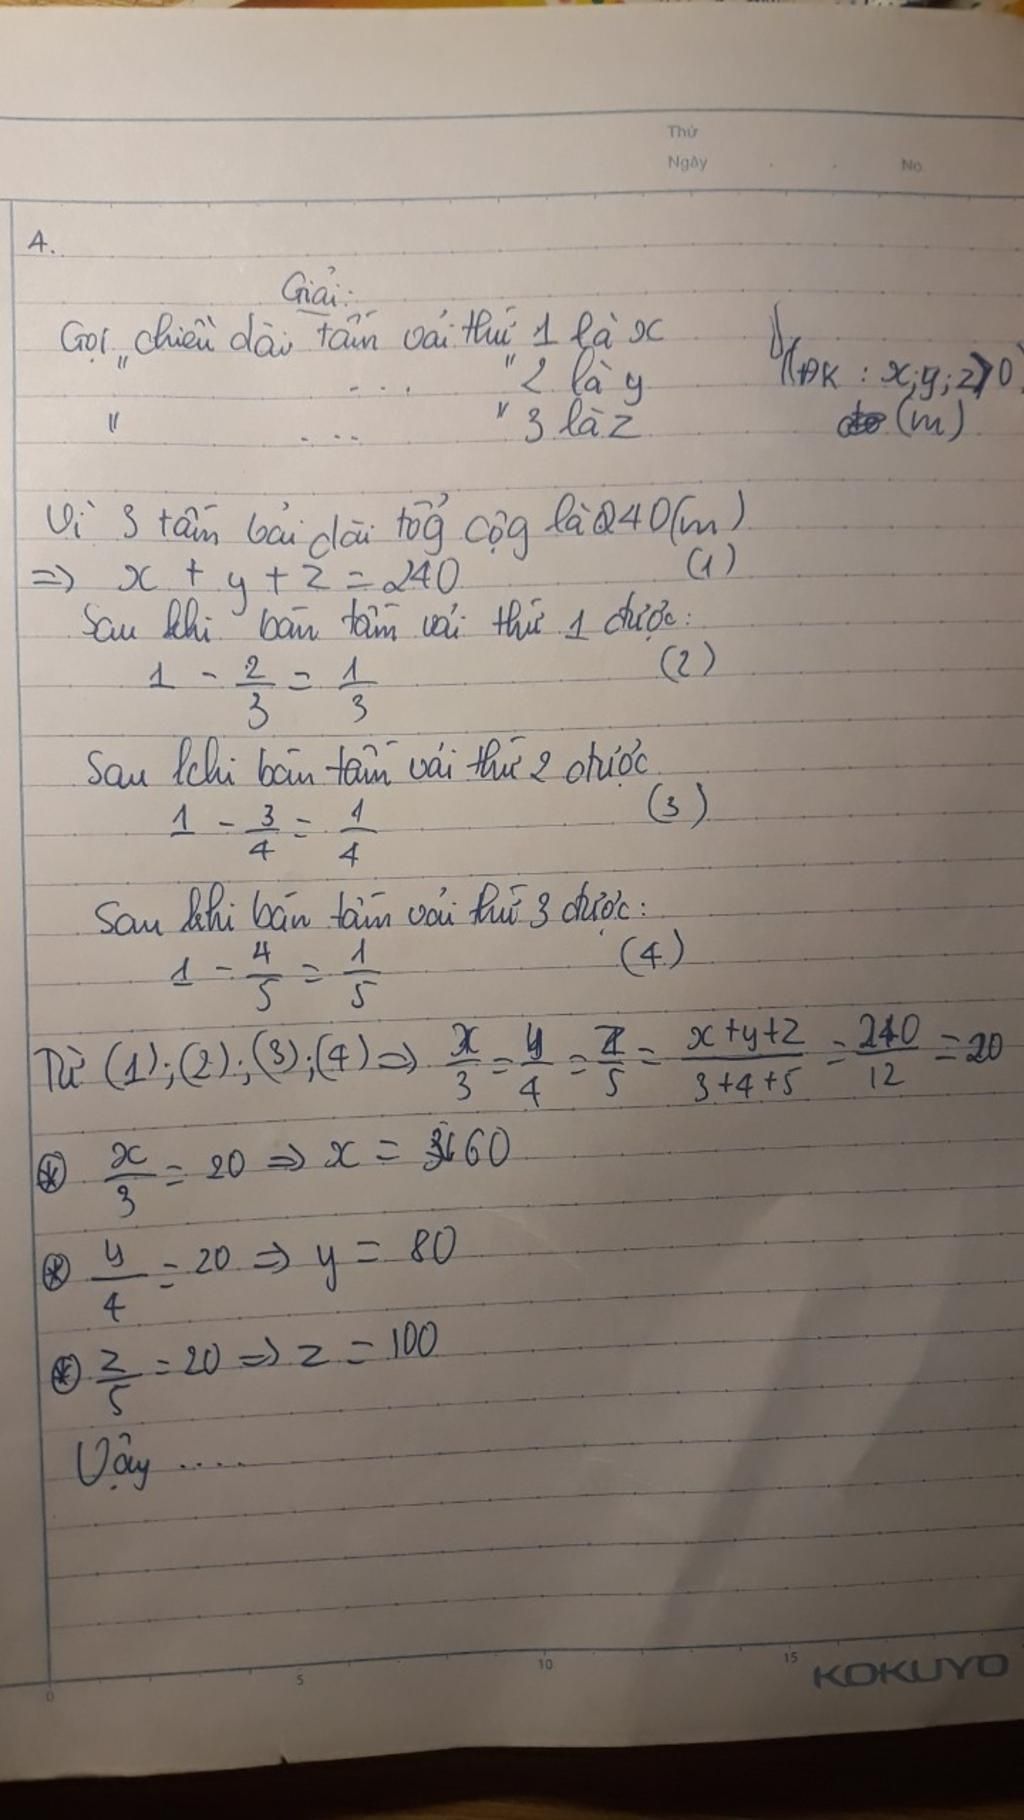 Thứ
Ngày . . No
4.
Giải:
Gọi chiều dài tấm vải thứ 1 là x
" ... " 2 là y (ĐK: x;y;z>0)
" ... " 3 là z (m)
Vì 3 tấm vải dài tổg cộg là 240(m)
=> x + y + z = 240 (1)
Sau khi bán tấm vải thứ 1 được:
1 - 2/3 = 1/3 (2)
Sau khi bán tấm vải thứ 2 được
1 - 3/4 = 1/4 (3)
Sau khi bán tấm vải thứ 3 được:
1 - 4/5 = 1/5 (4)
Từ (1);(2);(3);(4) => x/3 = y/4 = z/5 = x+y+z/3+4+5 = 240/12 = 20
* x/3 = 20 => x = 60
* y/4 = 20 => y = 80
* z/5 = 20 => z = 100
Vậy ....
0 5 10 15 KOKUYO